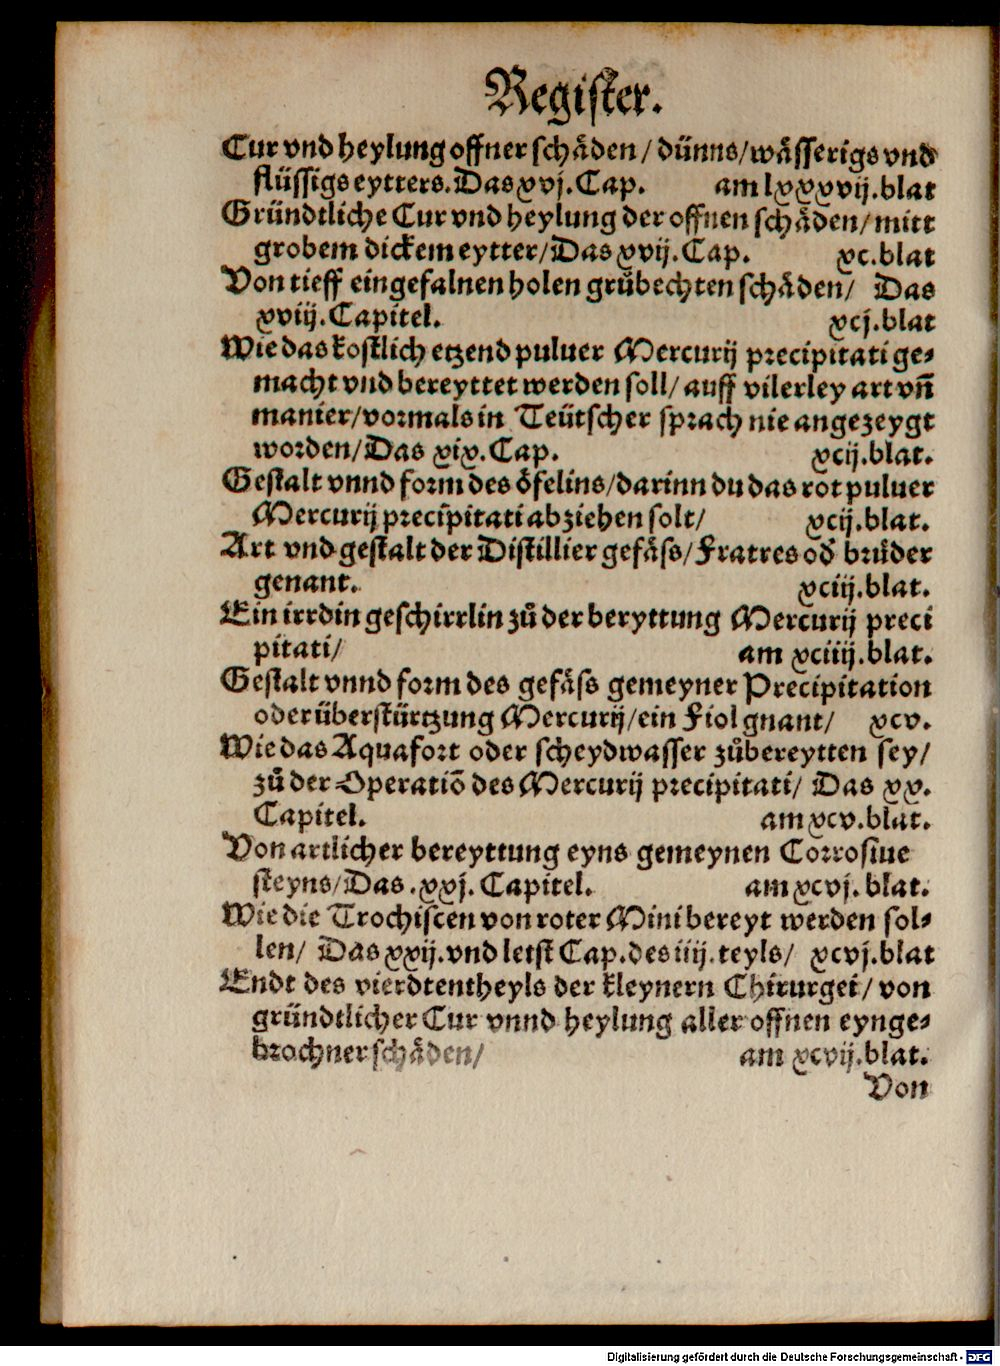 Register.
Cur vnd heylung offner schäden / dünns/wässerigs vnd
flüssigs eytters. Das xvj. Cap. am lxxxvij. blat
Gründtliche Cur vnd heylung der offnen schäden/ mitt
grobem dickem eytter/ Das xvij. Cap. xc. blat
Von tieff eingefalnen holen grübechten schäden/ Das
xviij. Capitel. xcj. blat
Wie das kostlich etzend puluer Mercurij precipitati ge-
macht vnd bereyttet werden soll/ auff vilerley art vñ
manier/vormals in Teütscher sprach nie angezeygt
worden/ Das xix. Cap. xcij. blat.
Gestalt vnnd form des öfelins/darinn du das rot puluer
Mercurij precipitati abziehen solt/ xcij. blat.
Art vnd gestalt der Distillier gefäss/ Fratres od̕ brüder
genant. xciij. blat.
Ein irrdin geschirrlin zů der beryttung Mercurij preci
pitati/ am xciiij. blat.
Gestalt vnnd form des gefäss gemeyner Precipitation
oder überstürtzung Mercurij/ein Fiol gnant/ xcv.
Wie das Aquafort oder scheydwasser zůbereytten sey/
zů der Operatiō des Mercurij precipitati/ Das xx.
Capitel. am xcv. blat.
Von artlicher bereyttung eyns gemeynen Corrosiue
steyns/Das .xxj. Capitel. am xcvj. blat.
Wie die Trochiscen von roter Mini bereyt werden sol-
len/ Das xxij. vnd letst Cap. des iiij. teyls/ xcvj. blat
Endt des vierdten theyls der kleynern Chirurgei/ von
gründtlicher Cur vnnd heylung aller offnen eynge-
brochner schäden/ am xcvij. blat.
Von
Digitalisierung gefördert durch die Deutsche Forschungsgemeinschaft - DFG